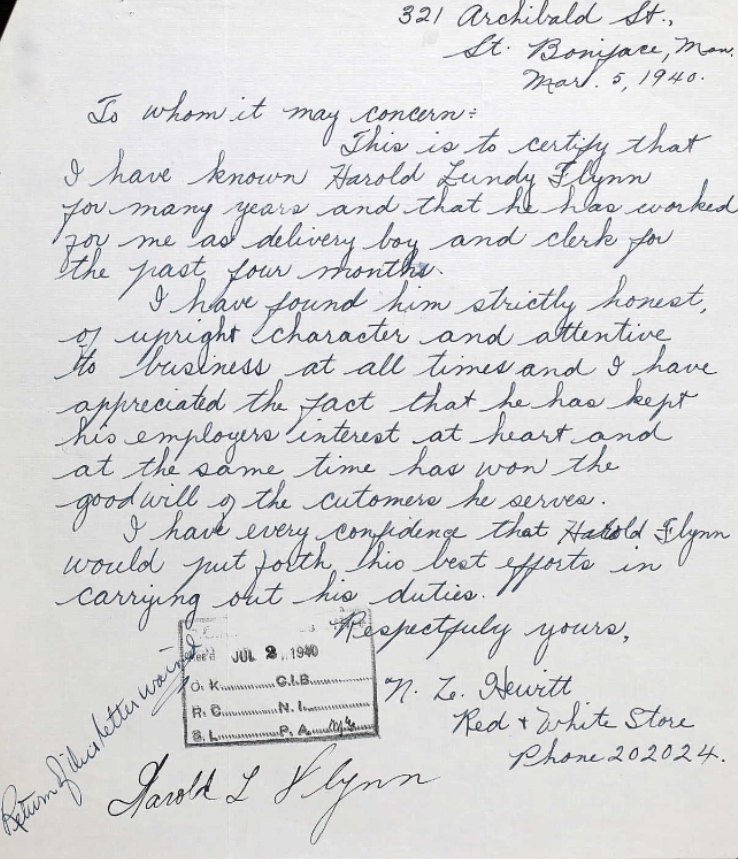 321 Archibald St.,
St. Boniface, Man.
Mar. 5, 1940.
To whom it may concern:
This is to certify that
I have known Harold Lundy Flynn
for many years and that he has worked
for me as delivery boy and clerk for
the past four months.
I have found him strictly honest,
of upright character and attentive
to business at all times and I have
appreciated the fact that he has kept
his employers interest at heart and
at the same time has won the
goodwill of the cutomers he serves.
I have every confidence that Harold Flynn
would put forth his best efforts in
carrying out his duties.
Respectfuly yours,
Rec'd JUL 2, 1940
O. K. C.I.B.
R. C. N. I.
S. L. P. A.
N. L. Hewitt
Red + White Store
Phone 202024.
Return of this letter waived
Harold L Flynn